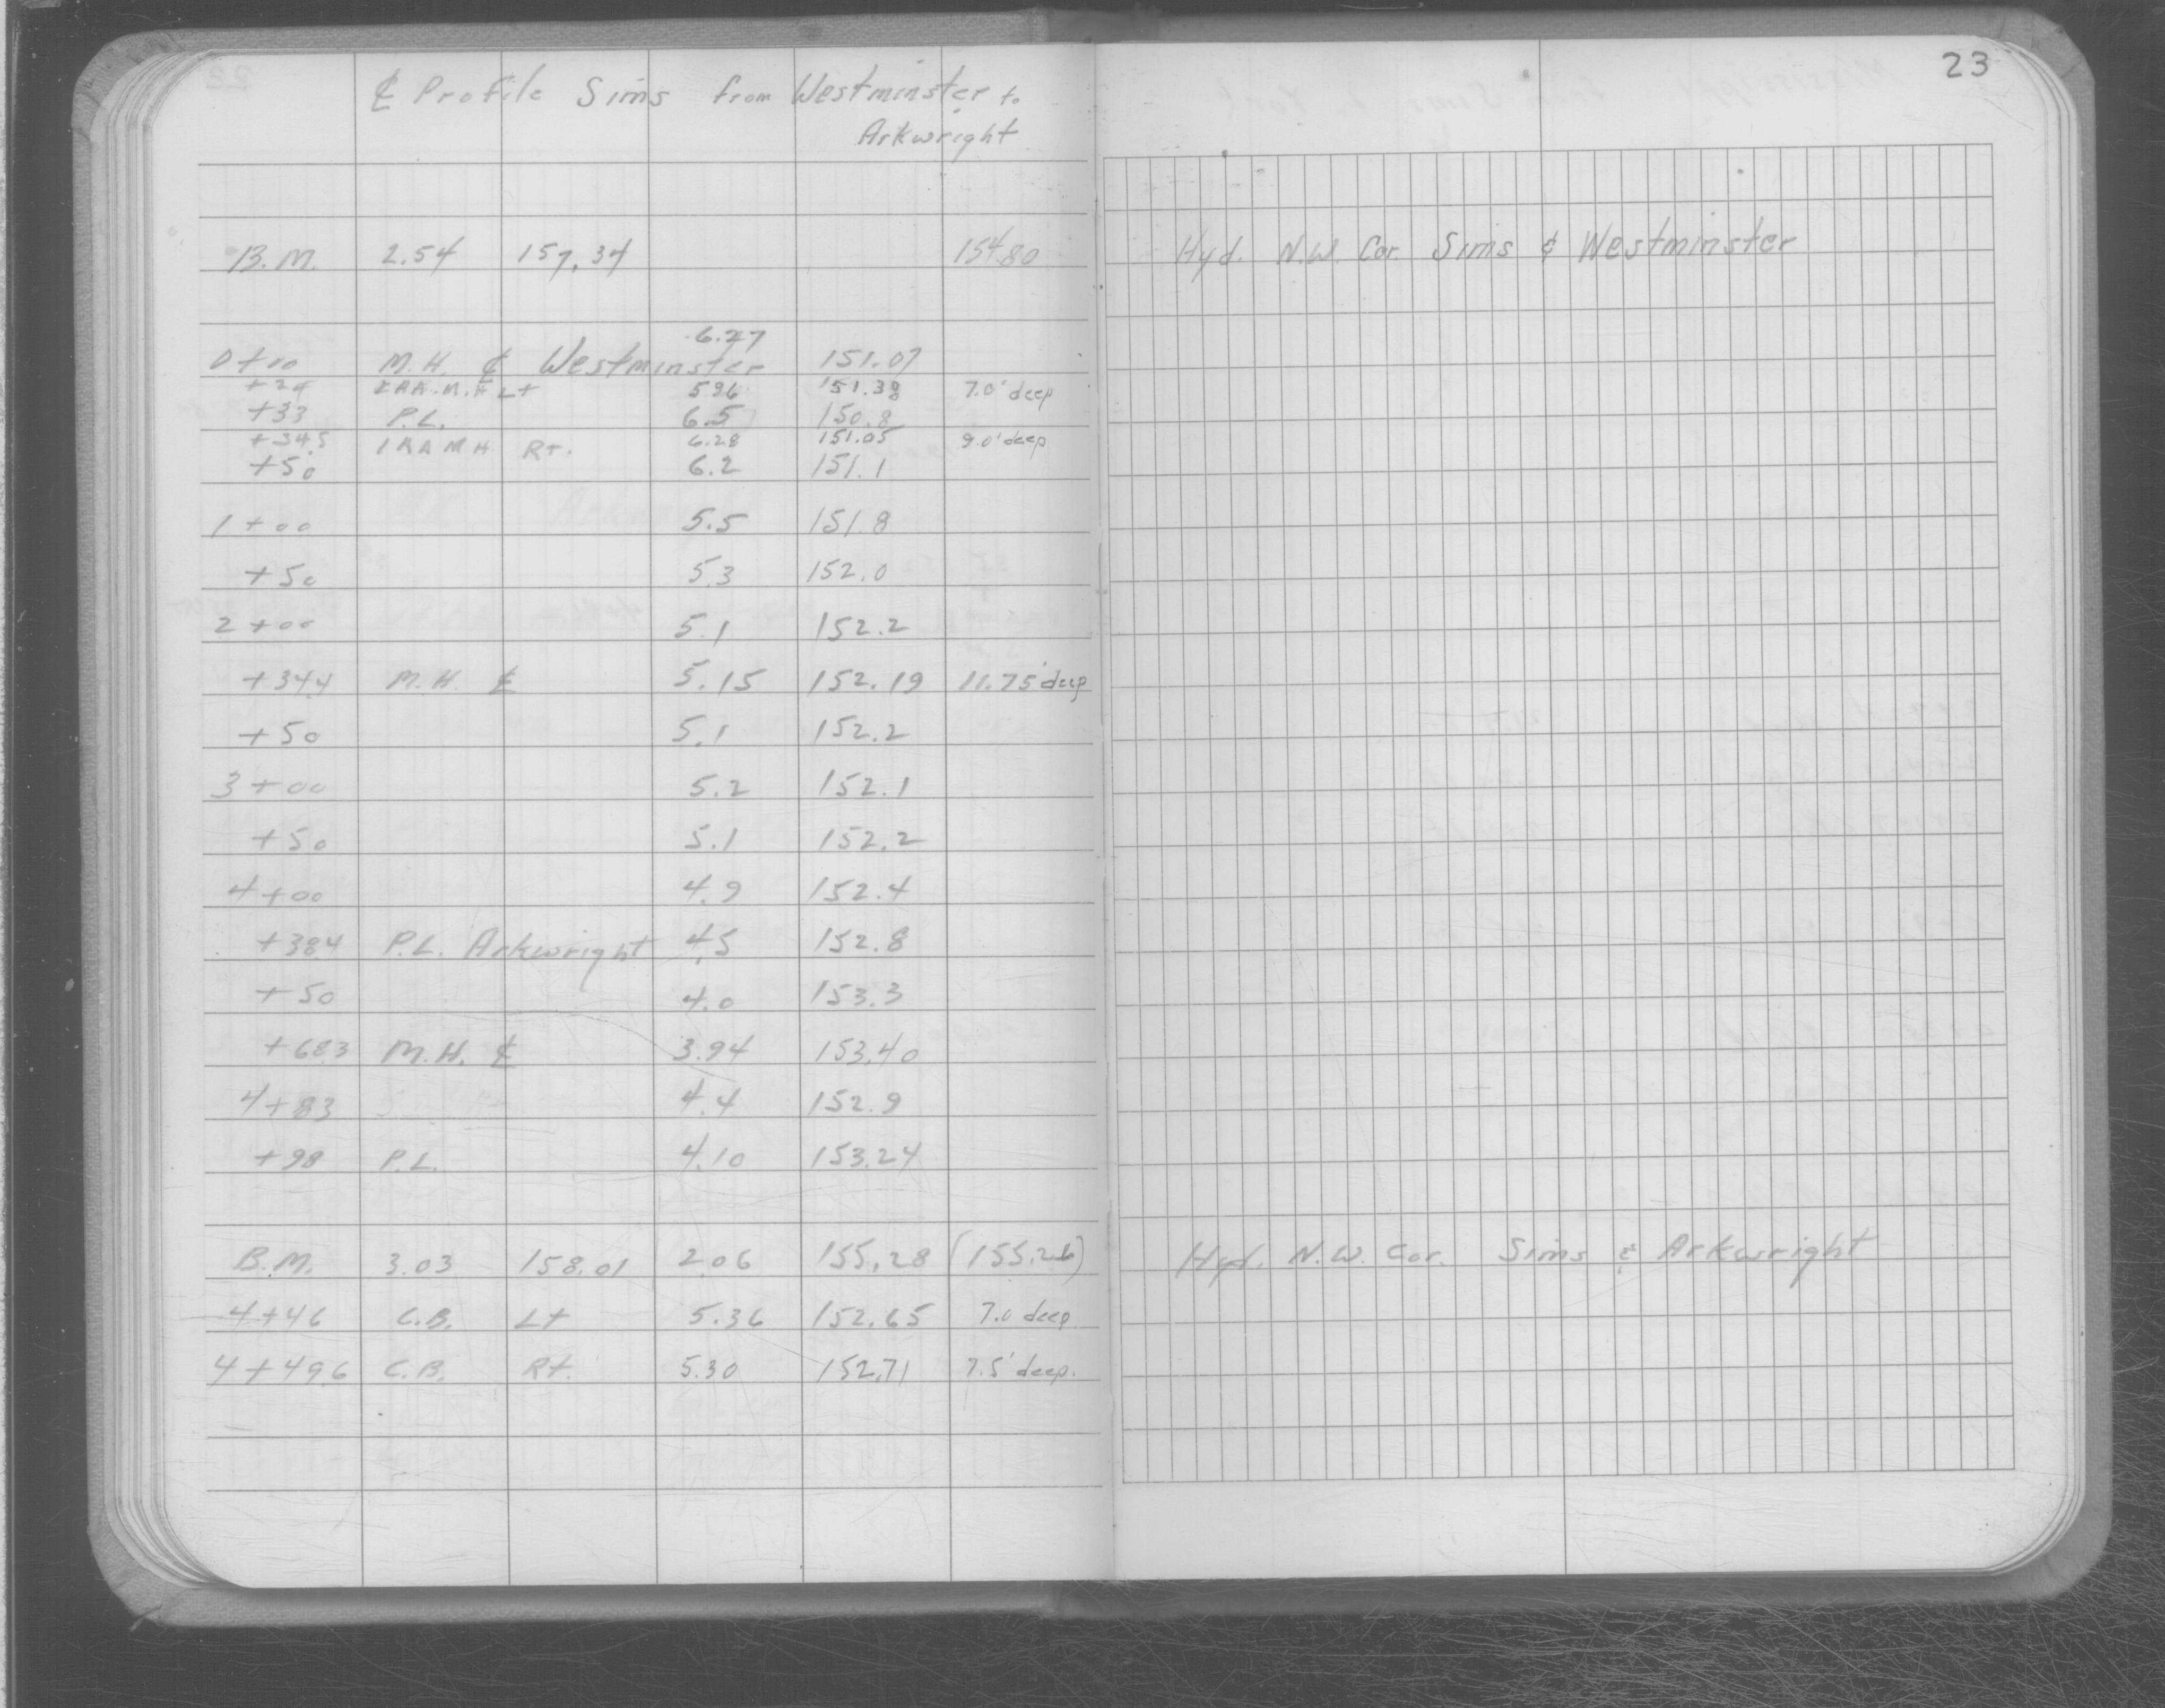 23
℄ Profile Sims from Westminster to
Arkwright
B.M. 2.54 157.34 154.80 Hyd. N.W. Cor. Sims & Westminster
6.27
0+00 M.H. ℄ Westminster 151.07
+24 M.H. Lt 5.96 151.38 7.0' deep
+33 P.L. 6.5 150.8
+34.5 M H Rt. 6.28 151.05 9.0' deep
+50 6.2 151.1
1+00 5.5 151.8
+50 5.3 152.0
2+00 5.1 152.2
+34.4 M.H. ℄ 5.15 152.19 11.75' deep
+50 5.1 152.2
3+00 5.2 152.1
+50 5.1 152.2
4+00 4.9 152.4
+38.4 P.L. Arkwright 4.5 152.8
+50 4.0 153.3
+68.3 M.H. ℄ 3.94 153.40
4+83 4.4 152.9
+98 P.L. 4.10 153.24
B.M. 3.03 158.01 2.06 155.28 (155.26) Hyd. N.W. Cor. Sims & Arkwright
4+46 C.B. Lt 5.36 152.65 7.0 deep
4+49.6 C.B. Rt. 5.30 152.71 7.5' deep.